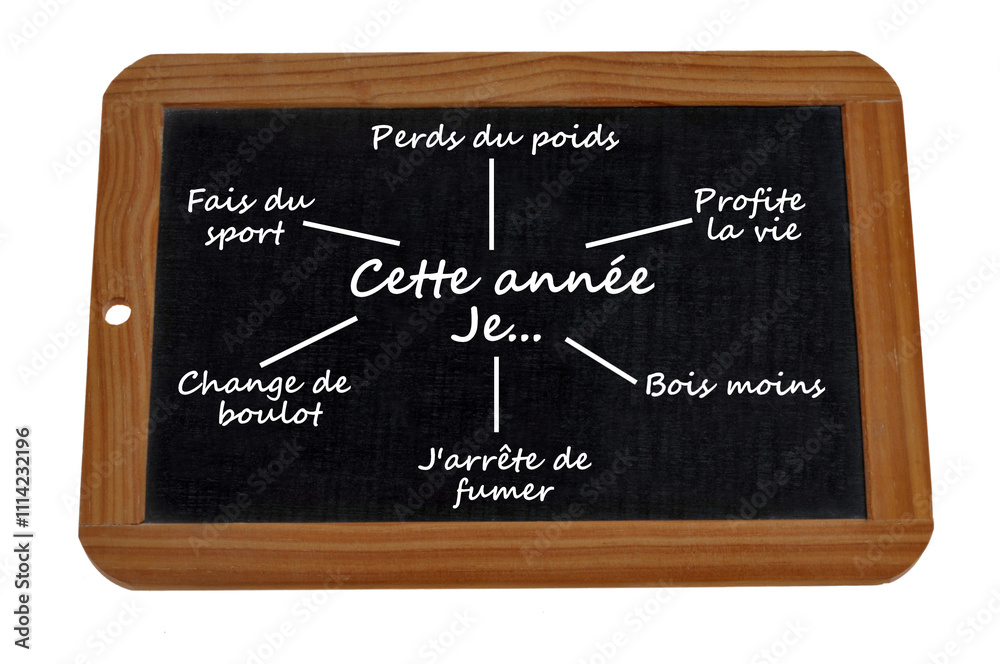 Perds du poids
Fais du
sport
Profite
la vie
Cette année
Je...
Change de
boulot
Bois moins
J'arrête de
fumer
Adobe Stock | #1114232196
Adobe Stock